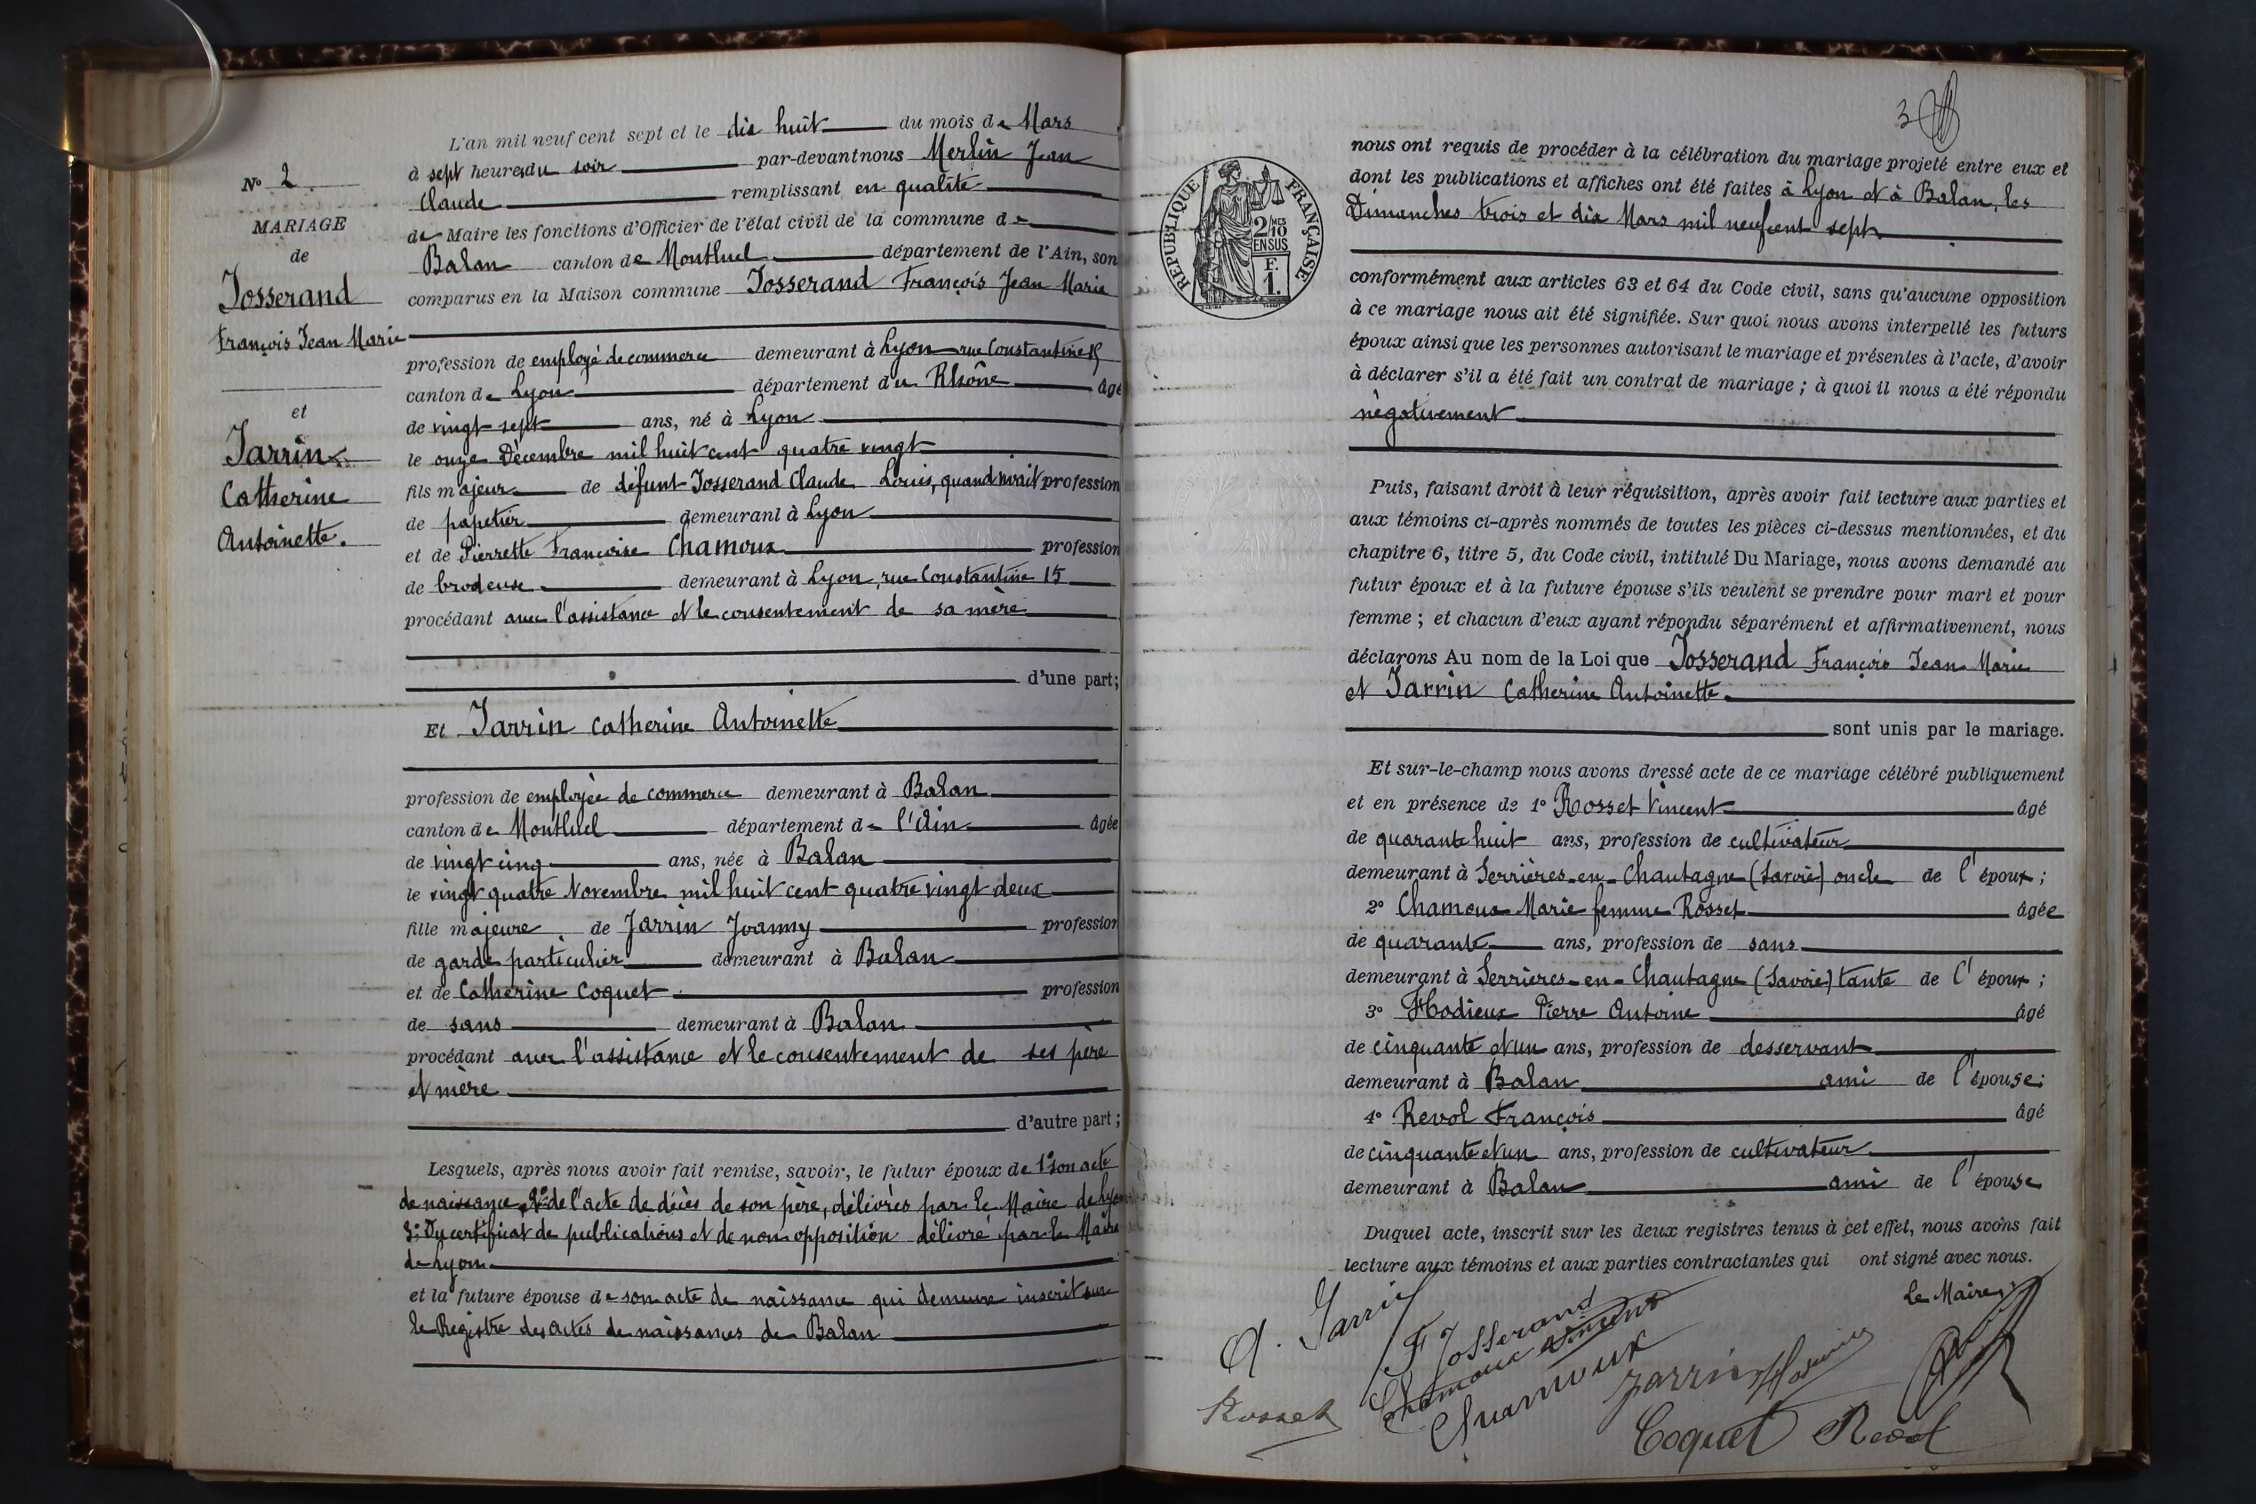 N° 2
MARIAGE
de
Josserand
François Jean Marie
et
Jarrin
Catherine
Antoinette.
L'an mil neuf cent sept et le dix huit du mois de Mars
à sept heures du soir par-devant nous Merlin Jean
Claude remplissant en qualité
de Maire les fonctions d'Officier de l'état civil de la commune de
Balan canton de Montluel département de l'Ain, son
comparus en la Maison commune Josserand François Jean Marie
profession de employé de commerce demeurant à Lyon rue Constantine 15
canton de Lyon département du Rhône âgé
de vingt sept ans, né à Lyon
le onze Décembre mil huit cent quatre vingt
fils majeur de défunt Josserand Claude Louis, quand vivait profession
de papetier demeurant à Lyon
et de Pierrette Françoise Chamoux profession
de brodeuse demeurant à Lyon, rue Constantine 15
procédant avec l'assistance et le consentement de sa mère
d'une part;
Et Jarrin Catherine Antoinette
profession de employée de commerce demeurant à Balan
canton de Montluel département de l'Ain âgée
de vingt cinq ans, née à Balan
le vingt quatre Novembre mil huit cent quatre vingt deux
fille majeure de Jarrin Joanny profession
de garde particulier demeurant à Balan
et de Catherine Coquet profession
de sans demeurant à Balan
procédant avec l'assistance et le consentement de ses père
et mère
d'autre part;
Lesquels, après nous avoir fait remise, savoir, le futur époux de 1° son acte
de naissance, 2° de l'acte de décès de son père, délivrés par le Maire de Lyon
3° Du certificat de publications et de non opposition délivré par le Maire
de Lyon
et la future épouse de son acte de naissance qui demeure inscrit sur
le Registre des actes de naissances de Balan
3
RÉPUBLIQUE FRANÇAISE
2/10 MES
EN SUS
F.
1.
nous ont requis de procéder à la célébration du mariage projeté entre eux et
dont les publications et affiches ont été faites à Lyon et à Balan, les
Dimanches trois et dix Mars mil neuf cent sept
conformément aux articles 63 et 64 du Code civil, sans qu'aucune opposition
à ce mariage nous ait été signifiée. Sur quoi nous avons interpellé les futurs
époux ainsi que les personnes autorisant le mariage et présentes à l'acte, d'avoir
à déclarer s'il a été fait un contrat de mariage; à quoi il nous a été répondu
négativement
Puis, faisant droit à leur réquisition, après avoir fait lecture aux parties et
aux témoins ci-après nommés de toutes les pièces ci-dessus mentionnées, et du
chapitre 6, titre 5, du Code civil, intitulé Du Mariage, nous avons demandé au
futur époux et à la future épouse s'ils veulent se prendre pour mari et pour
femme; et chacun d'eux ayant répondu séparément et affirmativement, nous
déclarons Au nom de la Loi que Josserand François Jean Marie
et Jarrin Catherine Antoinette
sont unis par le mariage.
Et sur-le-champ nous avons dressé acte de ce mariage célébré publiquement
et en présence de 1° Rosset Vincent âgé
de quarante huit ans, profession de cultivateur
demeurant à Serrières-en-Chautagne (Savoie) oncle de l'époux;
2° Chamoux Marie femme Rosset âgée
de quarante ans, profession de sans
demeurant à Serrières-en-Chautagne (Savoie) tante de l'époux;
3° Hodieux Pierre Antoine âgé
de cinquante et un ans, profession de desservant
demeurant à Balan ami de l'épouse;
4° Revol François âgé
de cinquante et un ans, profession de cultivateur
demeurant à Balan ami de l'épouse
Duquel acte, inscrit sur les deux registres tenus à cet effet, nous avons fait
lecture aux témoins et aux parties contractantes qui ont signé avec nous.
Le Maire,
A. Jarrin
F Josserand
Chamoux
Chamoux
Rosset
Jarrin
Hodieux
Coquet
Revol